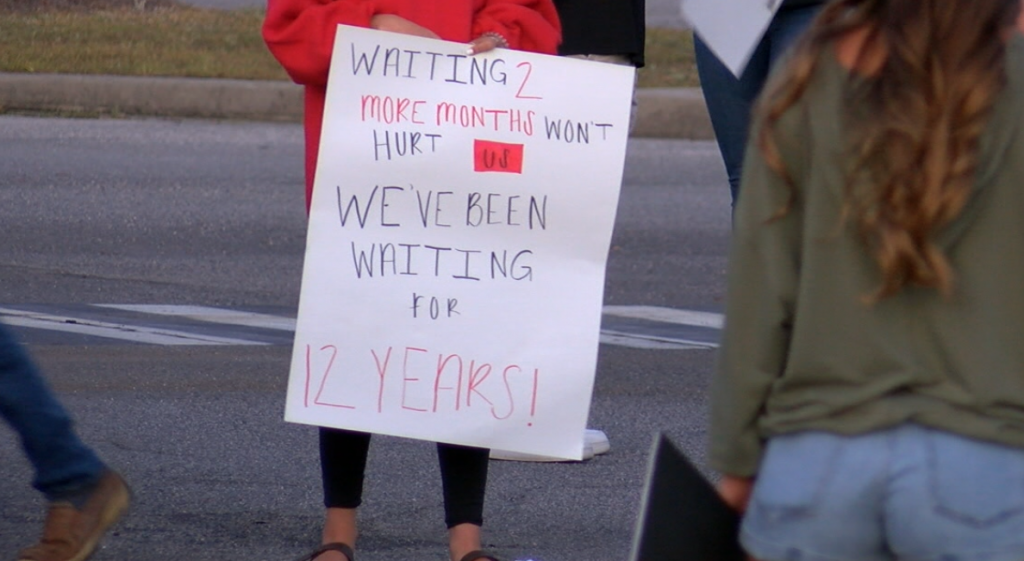 WAITING 2
MORE MONTHS WON'T
HURT US
WE'VE BEEN
WAITING
FOR
12 YEARS!